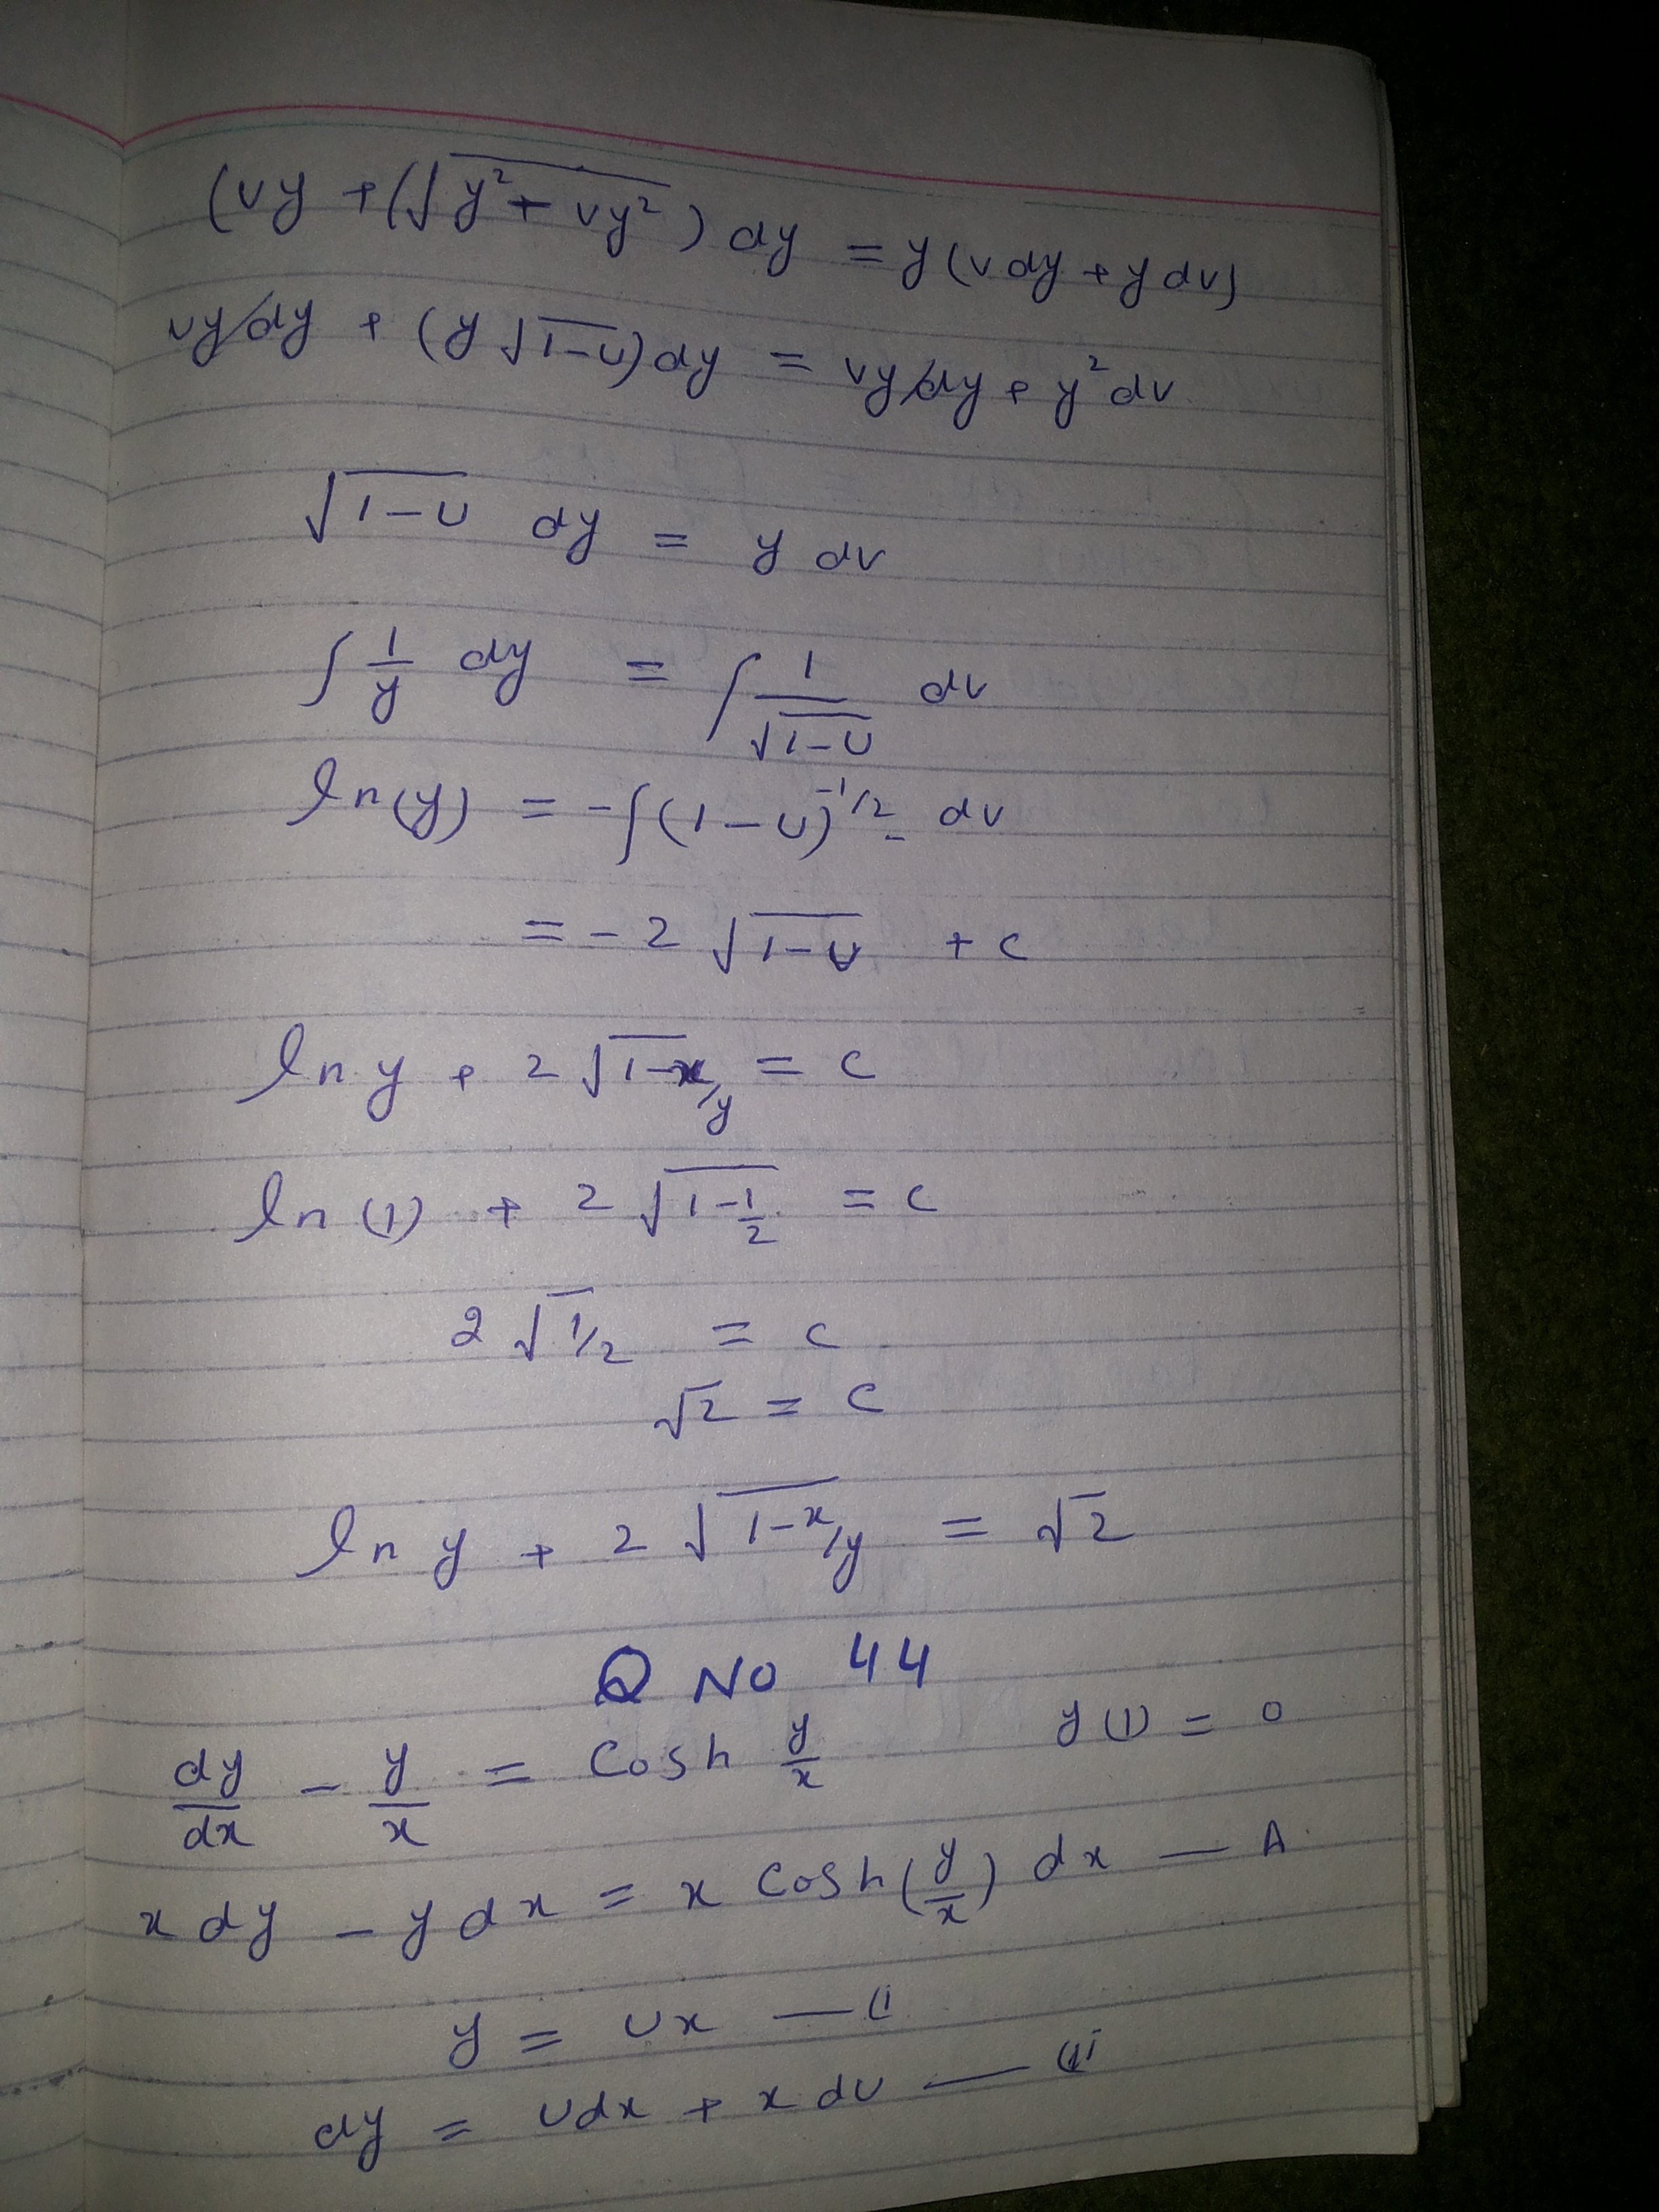 (vy + (√(y² - vy²)) dy = y(v dy + y dv)
vy dy + (y √(1-v)) dy = vy dy + y² dv
√(1-v) dy = y dv
∫ 1/y dy = ∫ 1/√(1-v) dv
ln(y) = -∫(1-v)^(-1/2) - dv
= -2 √(1-v) + c
ln y + 2 √(1-x/y) = c
ln (1) + 2 √(1-1/2) = c
2 √(1/2) = c
√2 = c
ln y + 2 √(1-x/y) = √2
Q No 44
dy/dx - y/x = Cosh y/x y(1) = 0
x dy - y dx = x Cosh(y/x) dx — A
y = vx — (i
dy = vdx + x dv — (ii